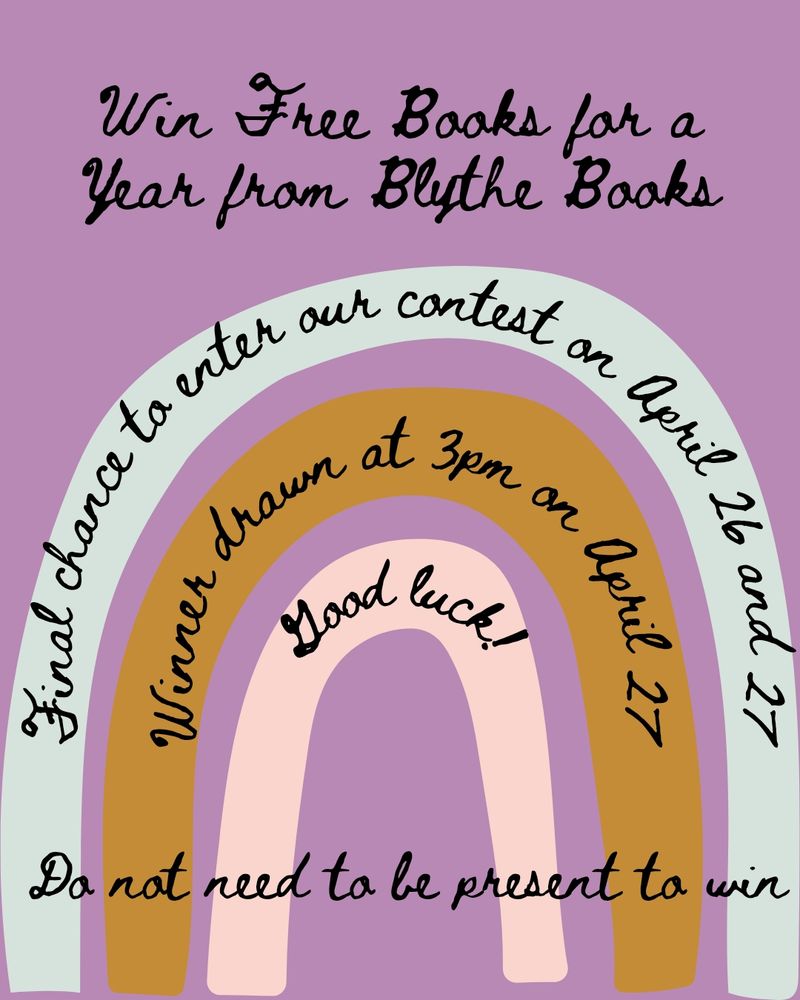 Win Free Books for a
Year from Blythe Books
Final chance to enter our contest on April 26 and 27
Winner drawn at 3pm on April 27
Good luck!
Do not need to be present to win